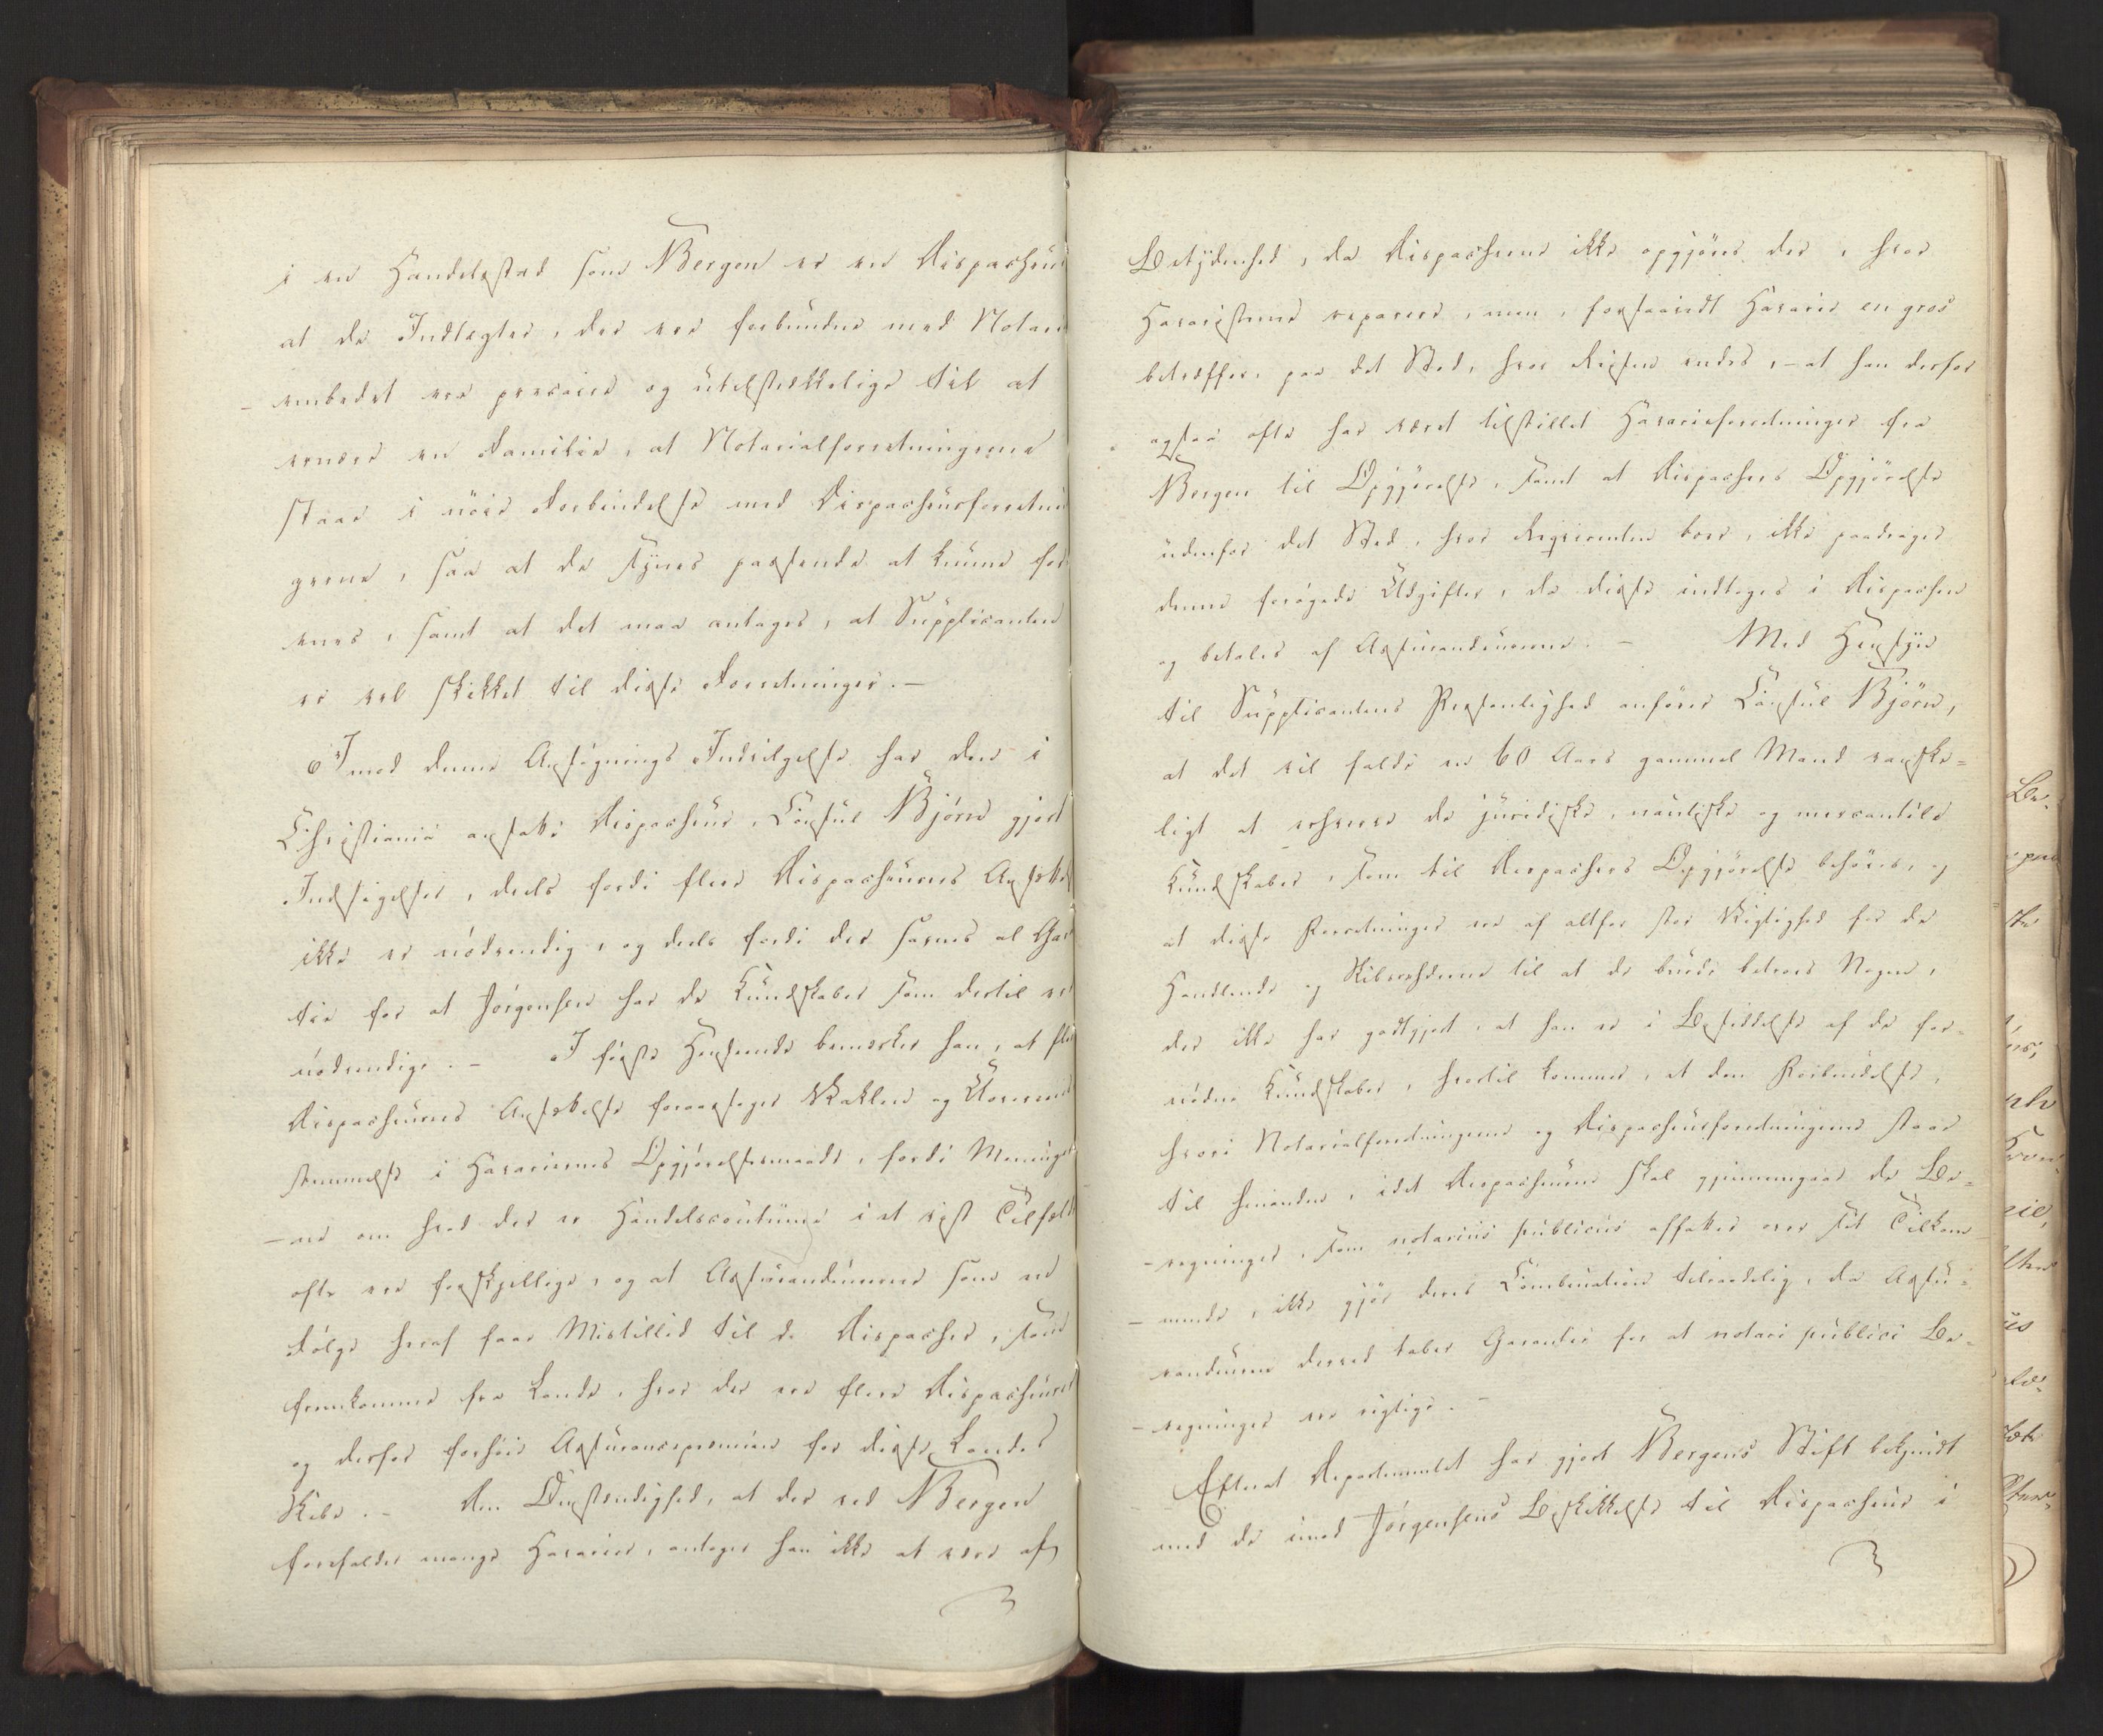 i en Handelsstad som Bergen er en Dispacheur
at de Indtægter, der ere forbundne med Notari-
embedet ere precaire og utilstrækkelige til at
ernære en Familie, at Notarialforretningerne
staae i nöie Forbindelse med Dispacheurforretnin
gerne, saa at de synes passende at kunne for
enes, samt at det maa antages, at Supplicanten
er vel skikket til disse Forretninger. –
Imod denne Ansögnings Indvilgelse har den i
Christiania ansatte Dispacheur, Consul Björn gjort
Indsigelser, deels fordi flere Dispacheurers Ansættel
ikke er nödvendig, og deels fordi der savnes al Garan
tie for at Jörgensen har de Kundskaber som dertil ere
nödvendige. – I förste Henseende bemærker han, at flere
Dispacheurers Ansættelse foraarsager Vaklen og Uoverens
stemmelse i Havariernes Opgjörelsesmaade, fordi Meninger
-ne om hvad der er Handelscoutume i et vist Tilfælde
ofte ere forskjellige, og at Assurandeurerne som en
Fölge heraf faae Mistillid til de Dispacher, som
fremkomme fra Lande, hvor der ere flere Dispacheurer
og derfor forhöie Assurancepræmien for disse Landes
Skibe. – Den Omstændighed, at der ved Bergen
forefalder mange Havarier, antager han ikke at være af
Betydenhed, da Dispacherne ikke opgjöres der, hvor
Havaristerne reparere, men, forsaavidt Havarie en gros
betræffer, paa det Sted, hvor Reisen endes, – at han derfor
ogsaa ofte har været tilstillet Havarieforretninger fra
Bergen til Opgjörelse, samt at Dispachers Opgjörelse
udenfor det Sted, hvor Reqvirenten boer, ikke paadrager
denne forögede Udgifter, da disse indtages i Dispachen
og betales af Assurandeurerne. – Med Hensyn
til Supplicantens Personlighed anförer Consul Björn,
at det vil falde en 60 Aars gammel Mand vanske-
ligt at erhverve de juridiske, nautiske og mercantile
Kundskaber, som til Dispachers Opgjörelse behöves, og
at disse Forretninger ere af altfor stor Vigtighed for de
Handlende og Skibsrhederne til at de burde betroes Nogen,
der ikke har godtgjort, at han er i Besiddelse af de for-
nödne Kundskaber, hvortil kommer, at den Forbindelse,
hvori Notarialforretningerne og Dispacheurforretningerne staae
til hinanden, idet Dispacheuren skal gjennemgaae de Be-
-regninger, som notarius publicus affatter over sit Tilkom
-mende, ikke gjör deres Combination tilraadelig, da Assu-
randeurerne derved taber Garantie for at notarii publici Be-
-regninger ere rigtige. –
Efterat Departementet har gjort Bergens Stift bekjendt
med de imod Jörgensens Beskikkelse til Dispacheur i